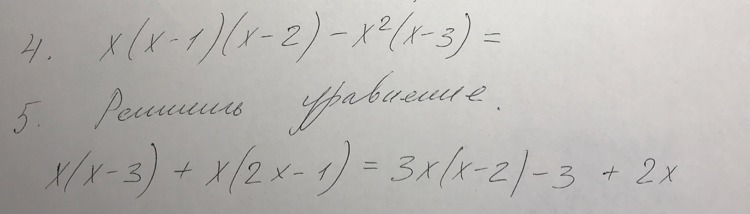 4. x(x-1)(x-2)-x²(x-3)=
5. Решить уравнение.
x(x-3)+x(2x-1)=3x(x-2)-3+2x